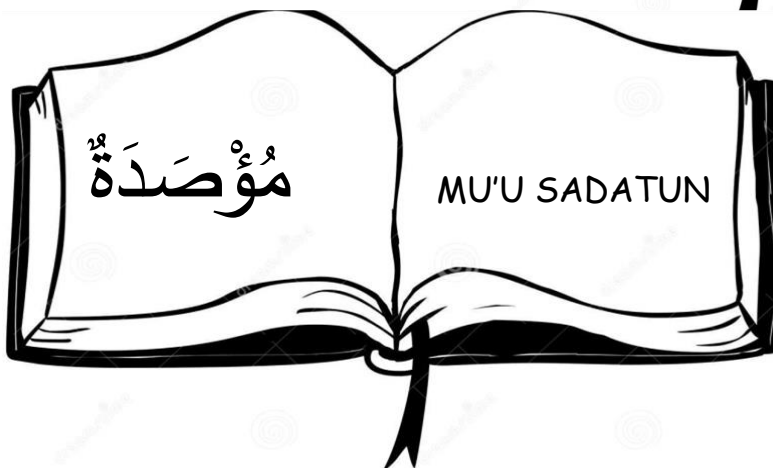 مُؤْصَدَةٌ
MU'U SADATUN